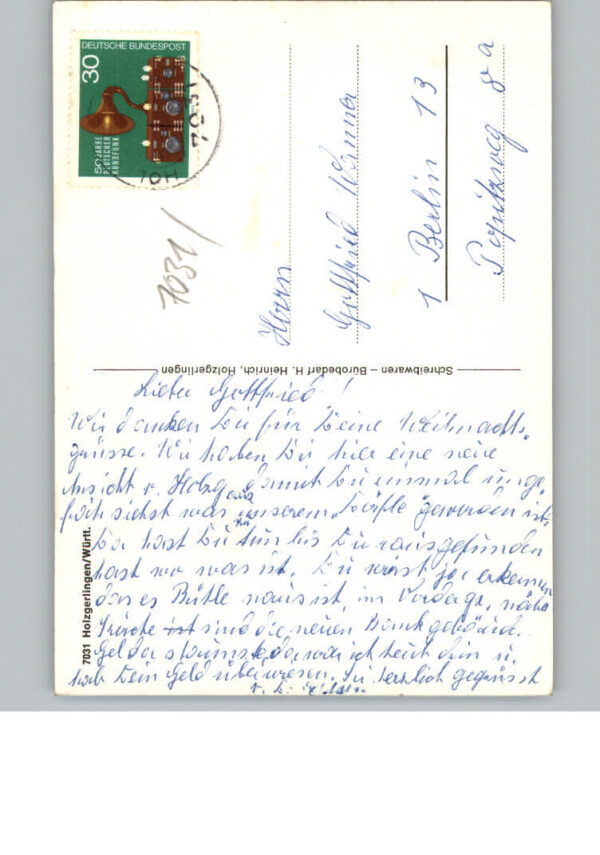 DEUTSCHE BUNDESPOST
30
50 JAHRE
DEUTSCHER
RUNDFUNK
7031
HOL
7031/
Herrn
Gottfried
1 Berlin 13
Popitzweg 8a
Schreibwaren – Bürobedarf H. Heinrich, Holzgerlingen
7031 Holzgerlingen/Württ.
Lieber Gottfried!
Wir danken Dir für Deine Weihnachts-
grüsse. Wir haben Dir hier eine neue
Ansicht v. Holzg. damit Du einmal unge-
fähr siehst was aus unserem Dörfle geworden ist.
Da hast Du zu tun bis Du rausgefunden
hast wo was ist. Du wirst ja erkennen
dass es Bühle naus ist, im Vorderge, nähe
Kirche ist sind die neuen Bankgebäude.
Geld da war ich heut drin u.
hab Dein Geld überwiesen. Sei herzlich gegrüsst
v. D.